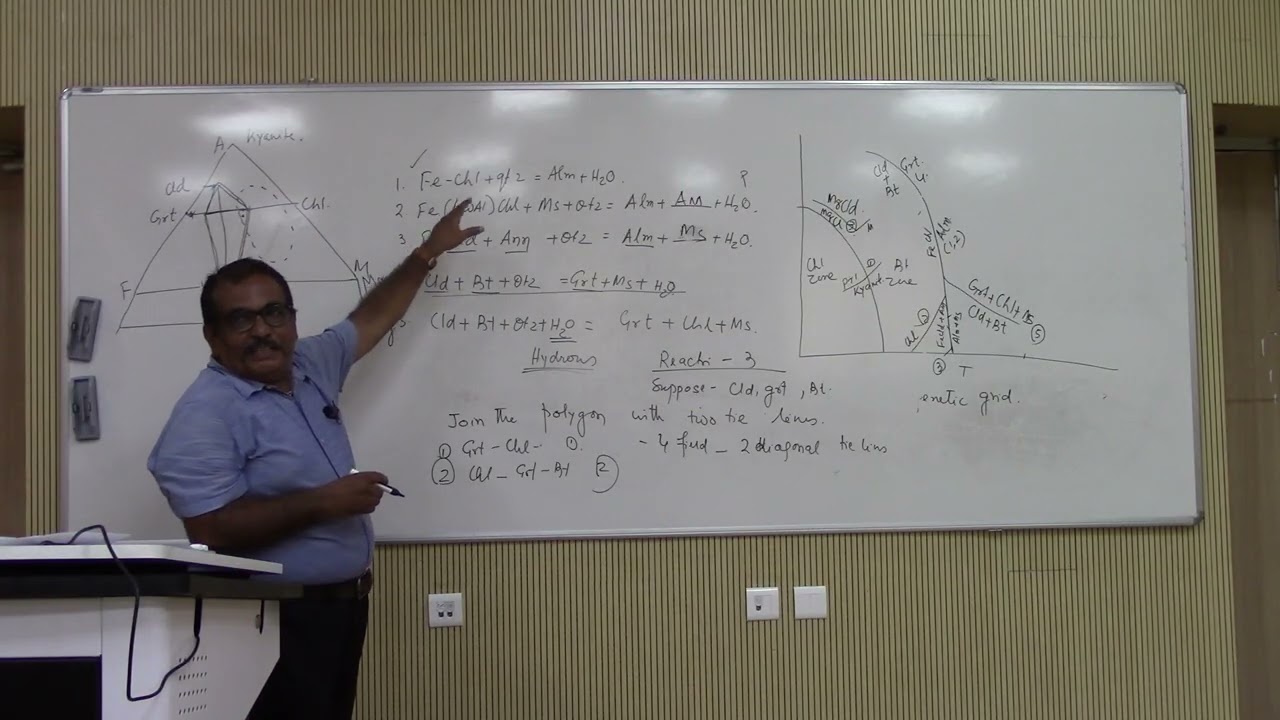 A Kyanite.
Cld
Grt
Chl
F
M
1. Fe-Chl + qtz = Alm + H2O.
2. Fe Chl + Ms + Qtz = Alm + Ann + H2O.
3 + Ann + Qtz = Alm + Ms + H2O.
Cld + Bt + Qtz = Grt + Ms + H2O
Cld + Bt + Qtz + H2O = Grt + Chl + Ms.
Hydrous
Reacti - 3
Suppose - Cld, grt, Bt.
Join the polygon with two tie lines.
① Grt - Chl - ①.
- 4 - 2 diagonal tie lins
② Chl - Grt - Bt ②
P
Cld + Bt
Grt
Mg Cld
Mg Chl
Chl zone
Prl
Kyanit
Bt zone
Fe Cld
Alm
(1,2)
Grt + Chl + Ms
Cld + Bt
⑤
③
T
enetic grid.